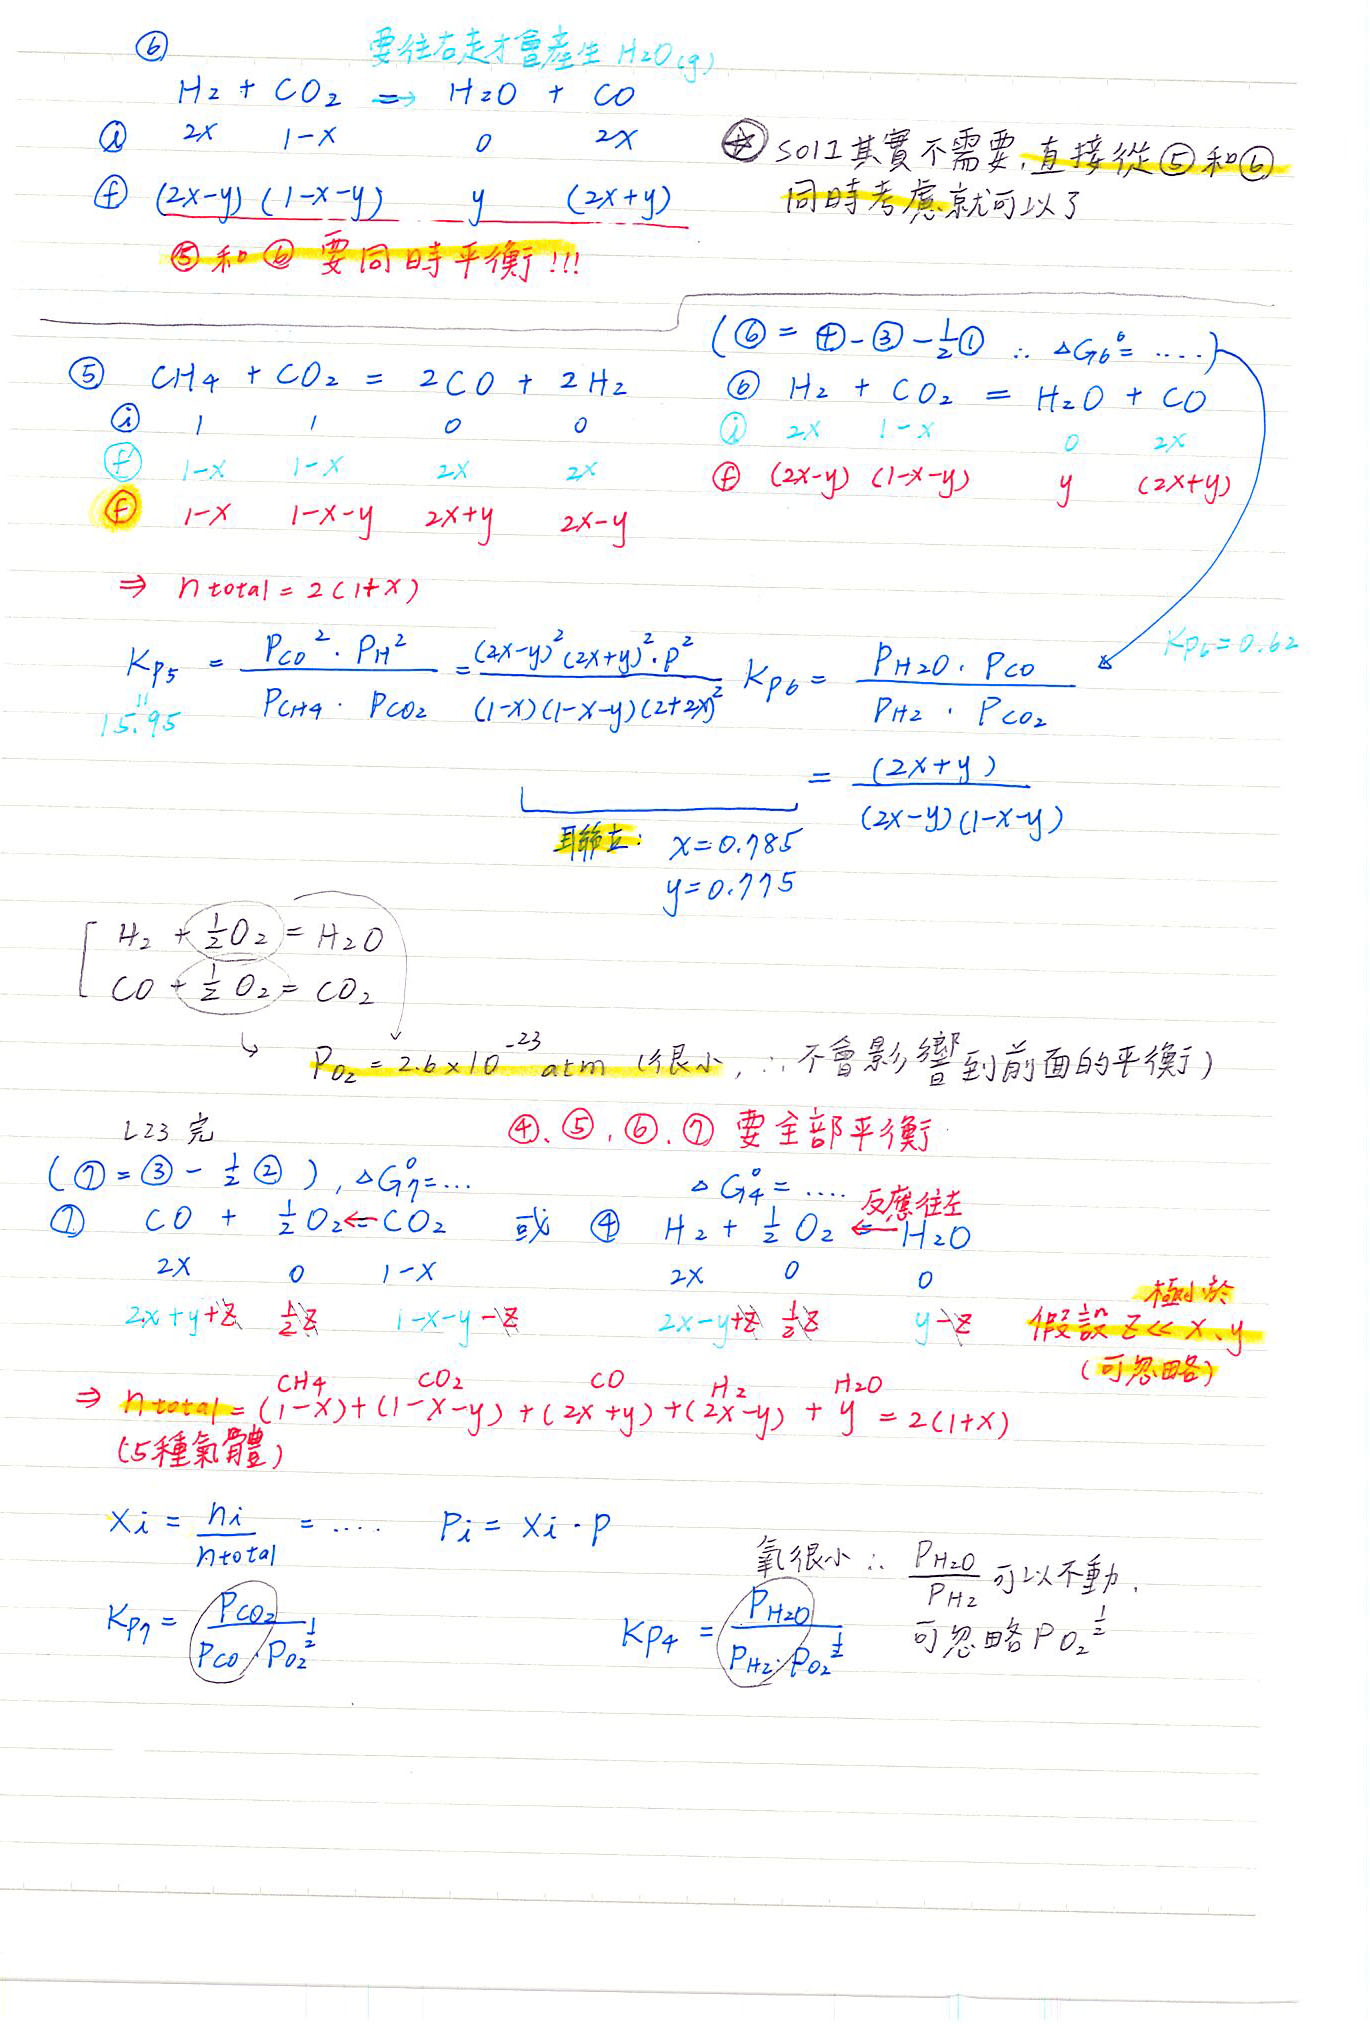 ⑥ 要往右走才會產生 H₂O(g)
H₂ + CO₂ ⇒ H₂O + CO
ⓘ 2x 1-x 0 2x
ⓕ (2x-y) (1-x-y) y (2x+y)
⑤和⑥要同時平衡!!!
☆ sol1其實不需要,直接從⑤和⑥
同時考慮就可以了
(⑥ = ④-③-½① ∴ ΔG₆° = ....)
⑤ CH₄ + CO₂ = 2CO + 2H₂
ⓘ 1 1 0 0
ⓕ 1-x 1-x 2x 2x
ⓕ 1-x 1-x-y 2x+y 2x-y
⑥ H₂ + CO₂ = H₂O + CO
ⓘ 2x 1-x 0 2x
ⓕ (2x-y) (1-x-y) y (2x+y)
⇒ n total = 2(1+x)
Kp₅ = Pco²·PH² / PCH₄·PCO₂ = (2x-y)²(2x+y)²·P² / (1-x)(1-x-y)(2+2x)²
॥
15.95
Kp₆ = PH₂O·PCO / PH₂·PCO₂
Kp₆=0.62
= (2x+y) / (2x-y)(1-x-y)
聯立: x=0.785
y=0.775
H₂ + ½O₂ = H₂O
CO + ½O₂ = CO₂
↳ PO₂ = 2.6×10⁻²³ atm (很小, ∴不會影響到前面的平衡)
L23 完
④、⑤、⑥、⑦ 要全部平衡
(⑦ = ③ - ½② ), ΔG₇°=...
ΔG₄° = .... 反應往左
⑦ CO + ½O₂ ← CO₂ 或 ④ H₂ + ½O₂ ← H₂O
2x 0 1-x 2x 0 0
2x+y+z ½z 1-x-y-z 2x-y+z ½z y-z
極小於
假設 z << x、y
(可忽略)
CH₄ CO₂ CO H₂ H₂O
⇒ n total = (1-x)+(1-x-y)+(2x+y)+(2x-y)+y = 2(1+x)
(5種氣體)
xi = ni / n total = .... Pi = xi·P
氧很小 ∴ PH₂O / PH₂ 可以不動.
可忽略PO₂^½
Kp₇ = PCO₂ / PCO·PO₂^½
Kp₄ = PH₂O / PH₂·PO₂^½